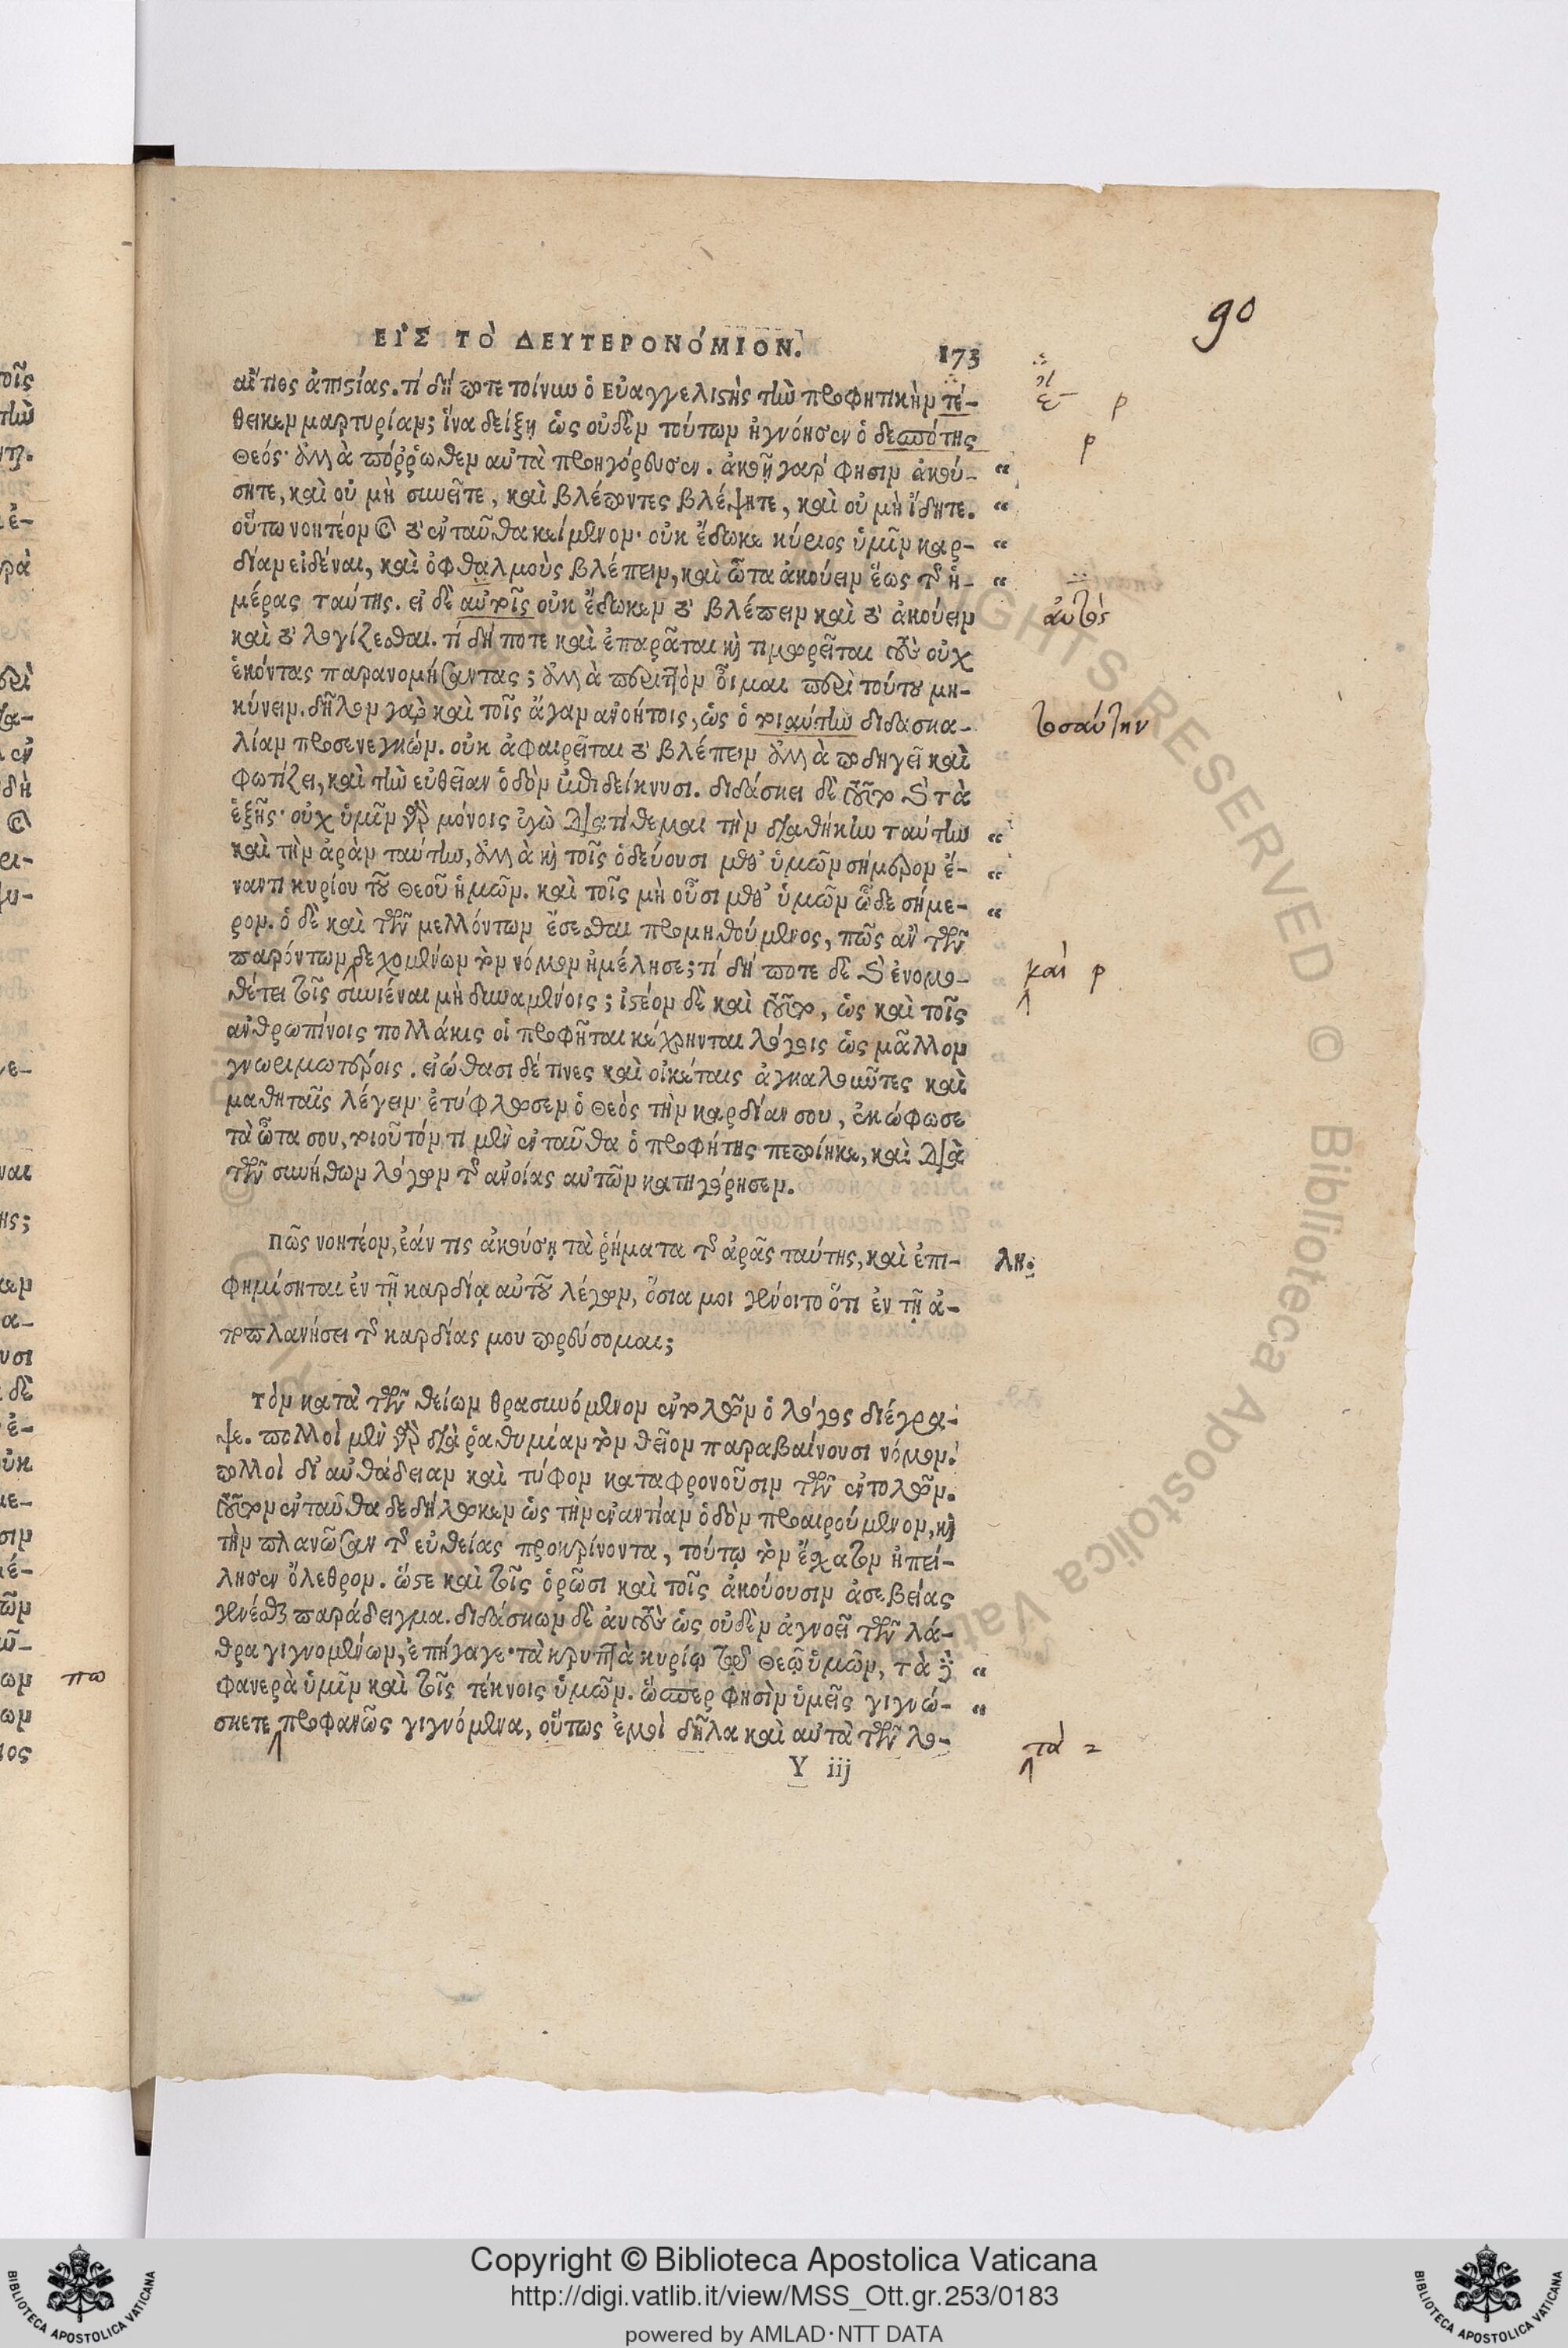 90
ΕΙΣ ΤΟ ΔΕΥΤΕΡΟΝΟΜΙΟΝ. 173
αἴτιος ἀπιστίας. τί δή ποτε τοίνυν ὁ Εὐαγγελιστὴς τὴν προφητικὴν τέ-
θεικεν μαρτυρίαν; ἵνα δείξῃ ὡς οὐδὲν τούτων ἠγνόησεν ὁ δεσπότης
Θεός· ἀλλὰ πόρρωθεν αὐτὰ προηγόρευσεν. ἀκοῇ γάρ φησιν ἀκού-
σητε, καὶ οὐ μὴ συνεῖτε, καὶ βλέποντες βλέψητε, καὶ οὐ μὴ ἴδητε.
οὕτω νοητέον καὶ τὸ ἐνταῦθα κείμενον· οὐκ ἔδωκε κύριος ὑμῖν καρ-
δίαν εἰδέναι, καὶ ὀφθαλμοὺς βλέπειν, καὶ ὦτα ἀκούειν ἕως τῆς ἡ-
μέρας ταύτης. εἰ δὲ αὐτοῖς οὐκ ἔδωκεν τὸ βλέπειν καὶ τὸ ἀκούειν
καὶ τὸ λογίζεσθαι. τί δή ποτε καὶ ἐπαρᾶται καὶ τιμωρεῖται τοὺς οὐχ
ἑκόντας παρανομήσαντας; ἀλλὰ περιττὸν οἶμαι περὶ τούτου μη-
κύνειν. δῆλον γὰρ καὶ τοῖς ἄγαν ἀνοήτοις, ὡς ὁ τοιαύτην διδασκα-
λίαν προσενεγκών. οὐκ ἀφαιρεῖται τὸ βλέπειν ἀλλὰ ποδηγεῖ καὶ
φωτίζει, καὶ τὴν εὐθεῖαν ὁδὸν ἐπιδείκνυσι. διδάσκει δὲ τοῦτο καὶ τὰ
ἑξῆς· οὐχ ὑμῖν γὰρ μόνοις ἐγὼ διατίθεμαι τὴν διαθήκην ταύτην
καὶ τὴν ἀρὰν ταύτην, ἀλλὰ καὶ τοῖς ὁδεύουσι μεθ' ὑμῶν σήμερον ἔ-
ναντι κυρίου τοῦ Θεοῦ ἡμῶν. καὶ τοῖς μὴ οὖσι μεθ' ὑμῶν ὧδε σήμε-
ρον. ὁ δὲ καὶ τῶν μελλόντων ἔσεσθαι προμηθούμενος, πῶς ἂν τῶν
παρόντων δεχομένων τὸν νόμον ἠμέλησε; τί δή ποτε δὲ καὶ ἐνομο-
θέτει τοῖς συνιέναι μὴ δυναμένοις; ἰστέον δὲ καὶ τοῦτο, ὡς καὶ τοῖς
ἀνθρωπίνοις πολλάκις οἱ προφῆται κέχρηνται λόγοις ὡς μᾶλλον
γνωριμωτέροις. εἰώθασι δέ τινες καὶ οἰκέταις ἀγκαλοῦντες καὶ
μαθηταῖς λέγειν· ἐτύφλωσεν ὁ Θεὸς τὴν καρδίαν σου, ἐκώφωσε
τὰ ὦτα σου, τοιοῦτόν τι μὲν ἐνταῦθα ὁ προφήτης πεποίηκε, καὶ διὰ
τῶν συνήθων λόγων τῆς ἀνοίας αὐτῶν κατηγόρησεν.
Πῶς νοητέον, ἐάν τις ἀκούσῃ τὰ ῥήματα τῆς ἀρᾶς ταύτης, καὶ ἐπι- λη.
φημίσηται ἐν τῇ καρδίᾳ αὐτοῦ λέγων, ὅσια μοι γένοιτο ὅτι ἐν τῇ ἀ-
ποπλανήσει τῆς καρδίας μου πορεύσομαι;
Τὸν κατὰ τῶν θείων θρασυνόμενον ἐντολῶν ὁ λόγος διέγρα-
ψε. πολλοὶ μὲν γὰρ διὰ ῥαθυμίαν τὸν θεῖον παραβαίνουσι νόμον.
πολλοὶ δι' αὐθάδειαν καὶ τύφον καταφρονοῦσιν τῶν ἐντολῶν.
τοῦτον ἐνταῦθα δεδήλωκεν ὡς τὴν ἐναντίαν ὁδὸν προαιρούμενον, καὶ
τὴν πλανῶσαν τῆς εὐθείας προκρίνοντα, τούτῳ τὸν ἔσχατον ἠπεί-
λησεν ὄλεθρον. ὥστε καὶ τοῖς ὁρῶσι καὶ τοῖς ἀκούουσιν ἀσεβείας
γενέσθαι παράδειγμα. διδάσκων δὲ αὐτοὺς ὡς οὐδὲν ἀγνοεῖ τῶν λά-
θρα γιγνομένων, ἐπήγαγε· τὰ κρυπτὰ κυρίῳ τῷ Θεῷ ὑμῶν, τὰ δὲ
φανερὰ ὑμῖν καὶ τοῖς τέκνοις ὑμῶν. ὥσπερ φησὶν ὑμεῖς γιγνώ-
σκετε προφανῶς γιγνόμενα, οὕτως ἐμοὶ δῆλα καὶ αὐτὰ τῶν λο-
Y iij
αὐτὸς
τοσαύτην
καὶ ρ
τὰ 2
πω
ALL RIGHTS RESERVED © Biblioteca Apostolica Vaticana
Copyright © Biblioteca Apostolica Vaticana
http://digi.vatlib.it/view/MSS_Ott.gr.253/0183
powered by AMLAD·NTT DATA
BIBLIOTECA APOSTOLICA VATICANA
BIBLIOTECA APOSTOLICA VATICANA